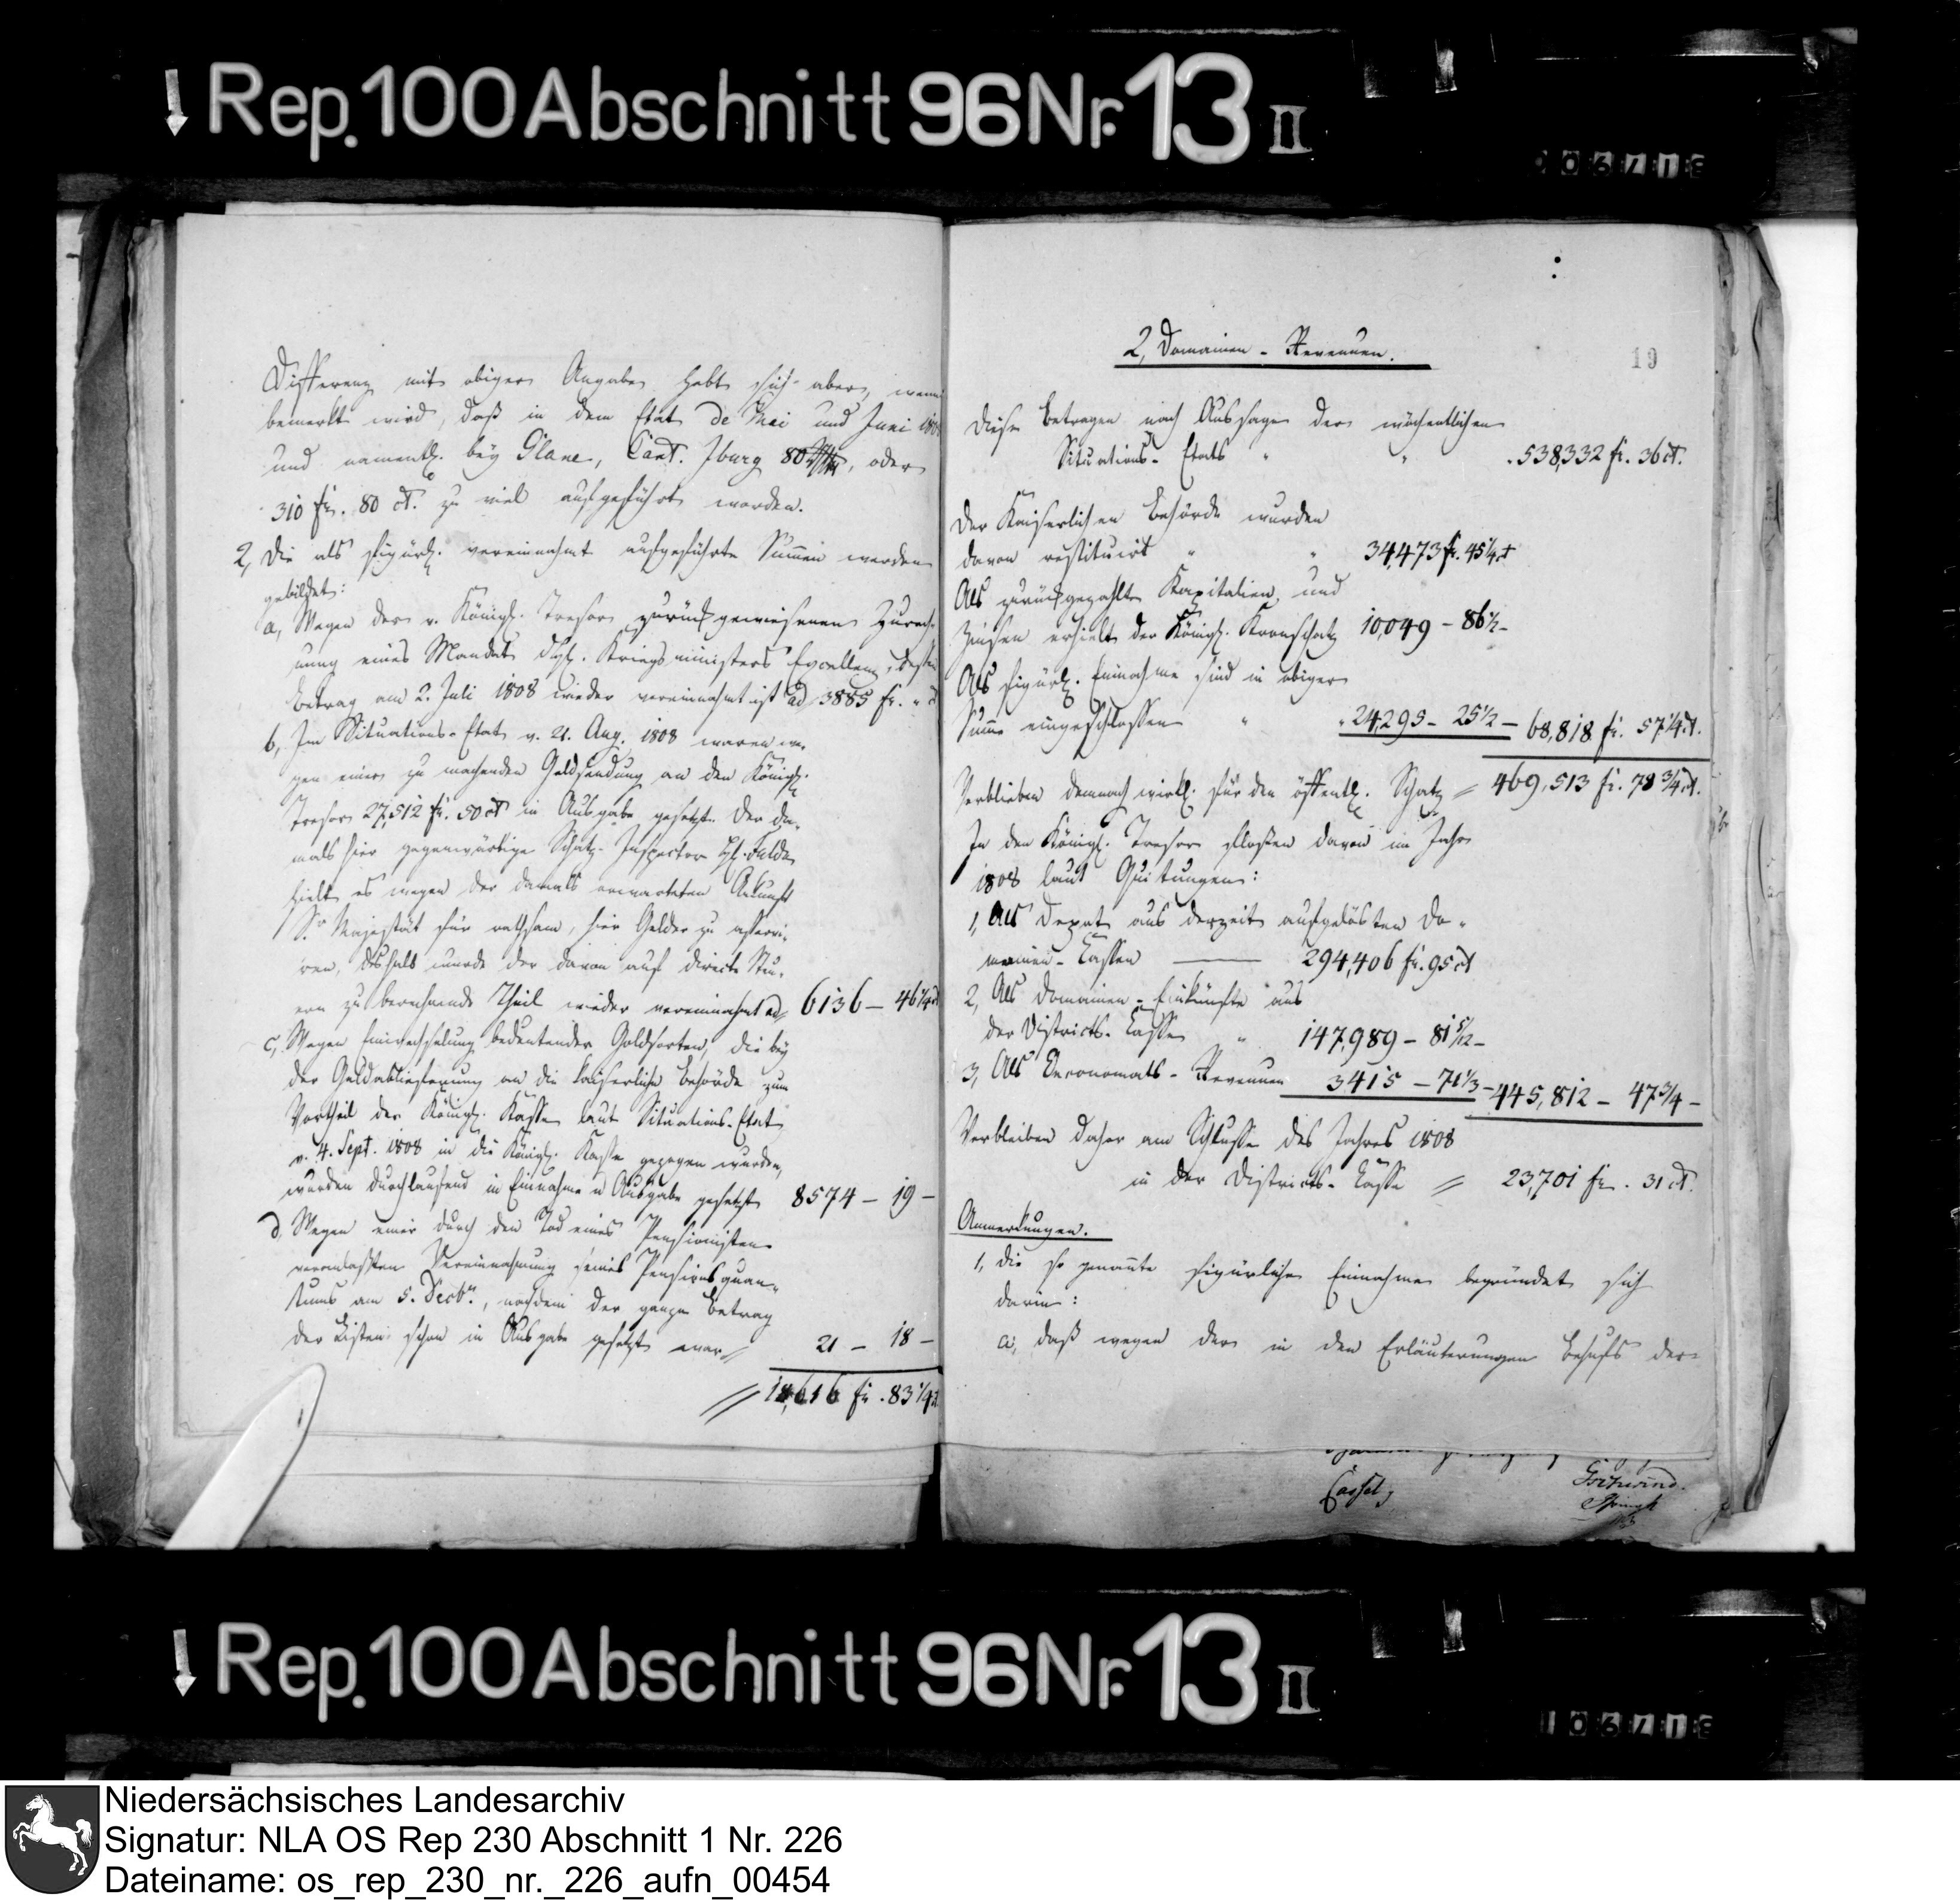 Rep. 100 Abschnitt 96 Nr. 13 II
Differenz mit obiger Angabe hebt sich aber, wenn
bemerkt wird, daß in dem Etat de Mai und Juni 1808
und namentl. bey Glane, Cant. Iburg 80 , oder
310 fr. 80 ct. zu viel aufgeführt worden.
2, Die als figürl. vereinnahmt aufgeführte Summen werden
gebildet:
a, Wegen der v. Königl. Tresor zurückgewiesenen Zurech-
nung eines Mandats Kriegsministers Excellenz, dessen
Betrag am 2. Juli 1808 wieder vereinnahmt ist ad 3885 fr. " ct
b, Im Situations-Etat v. 21. Aug. 1808 waren we-
gen einer zu machenden Geldsendung an den Königl.
Tresor 27,512 fr. 50 ct in Ausgabe gesetzt. Der da-
mals hier gegenwärtige Schatz-Inspector
hielt es wegen der damals erwarteten Ankunft
Sr. Majestät für rathsam, hier Gelder zu asservi-
ren, deshalb wurde der davon auf directe Steu-
ern zu berechnende Theil wieder vereinnahmt ad 6136 – 46 1/4
c, Wegen Einwechselung bedeutender Goldsorten, die bey
der Geldablieferung an die Kaiserliche Behörde zum
Vortheil der Königl. Kasse laut Situations-Etat
v. 4. Sept. 1808 in die Königl. Kasse gezogen wurden,
wurden durchlaufend in Einnahme u Ausgabe gesetzt 8574 – 19 –
d, Wegen einer durch den Tod eines Pensionisten
veranlaßten Vereinnahmung seines Pensionsquan-
tums am 5. Decbr., nachdem der ganze Betrag
der Listen schon in Ausgabe gesetzt war 21 – 18 –
= 18,616 fr. 83 1/4 ct
19
2, Domainen-Revenuen.
Diese betragen nach Aussage der wöchentlichen
Situations-Etats " " 538,332 fr. 36 ct.
Der Kaiserlichen Behörde wurden
davon restituirt " " 34,473 fr. 45 1/4 ct
Als zurückgezahlte Kapitalien und
Zinsen erhielt der Königl. Kronschatz 10,049 – 86 1/2 –
Als figürl. Einnahme sind in obiger
Summe eingeschlossen " " 24,295 – 25 1/2 – 68,818 fr. 57 1/4 ct.
Verblieben demnach wirkl. für den öffentl. Schatz = 469,513 fr. 78 3/4 ct.
In den Königl. Tresor flossen davon im Jahr
1808 laut Quitungen:
1, Als Depot aus derzeit aufgelösten Do-
mainen-Cassen —— 294,406 fr. 95 ct
2, Als Domainen-Einkünfte aus
der Districts-Casse " 147,989 – 81 5/12 –
3, Als Oeconomats-Revenuen 3415 – 71 1/3 – 445,812 – 47 3/4 –
Verbleiben daher am Schlusse des Jahres 1808
in der Districts-Casse = 23,701 fr. 31 ct.
Anmerkungen.
1, Die so genannte figürliche Einnahme begründet sich
darin:
a, daß wegen der in den Erläuterungen behufs der
Cassel,
Rep. 100 Abschnitt 96 Nr. 13 II
Niedersächsisches Landesarchiv
Signatur: NLA OS Rep 230 Abschnitt 1 Nr. 226
Dateiname: os_rep_230_nr._226_aufn_00454